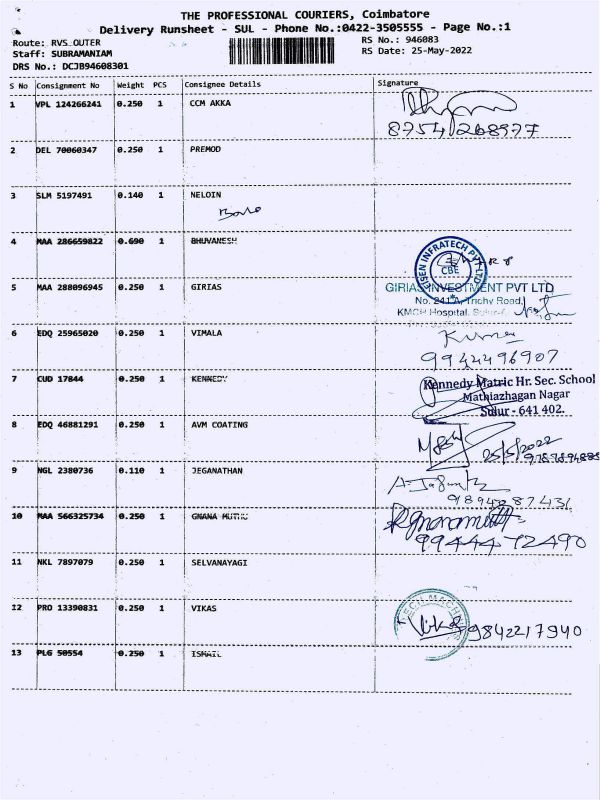 THE PROFESSIONAL COURIERS, Coimbatore
Delivery Runsheet - SUL - Phone No.:0422-3505555 - Page No.:1
Route: RVS_OUTER
RS No.: 946083
Staff: SUBRAMANIAM
RS Date: 25-May-2022
DRS No.: DCJB94608301
S No Consignment No Weight PCS Consignee Details Signature
1 VPL 124266241 0.250 1 CCM AKKA
8754268977
2 DEL 70060347 0.250 1 PREMOD
3 SLM 5197491 0.140 1 NELOIN
4 MAA 286659822 0.690 1 BHUVANESH
INFRATECH PVT LTD
CBE
5 MAA 288096945 0.250 1 GIRIAS
GIRIAS INVESTMENT PVT LTD
No. 241 A, Trichy Road,
KMCH Hospital,
6 EDQ 25965020 0.250 1 VIMALA
9944496907
7 CUD 17844 0.250 1 KENNEDY
Kennedy Matric Hr. Sec. School
Mathiazhagan Nagar
Sulur - 641 402.
8 EDQ 46881291 0.250 1 AVM COATING
25/5/2022
9 NGL 2380736 0.110 1 JEGANATHAN
10 MAA 566325734 0.250 1 GNANA MUTHU
9944472490
11 NKL 7897079 0.250 1 SELVANAYAGI
12 PRO 13390831 0.250 1 VIKAS
9842217940
13 PLG 50554 0.250 1 ISMAIL